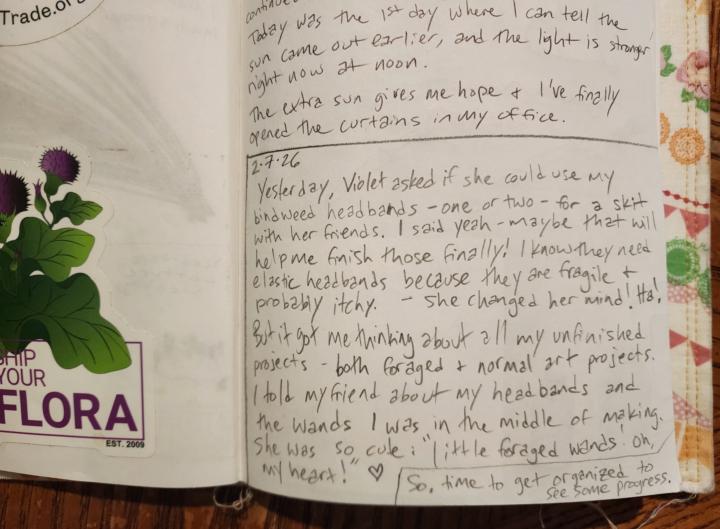 Trade.org
SHIP
YOUR
FLORA
EST. 2009
continued
Today was the 1st day where I can tell the
sun came out earlier, and the light is stronger
right now at noon.
The extra sun gives me hope + I've finally
opened the curtains in my office.
2-7-26
Yesterday, Violet asked if she could use my
bindweed headbands - one or two - for a skit
with her friends. I said yeah - maybe that will
help me finish those finally! I know they need
elastic headbands because they are fragile +
probably itchy. - She changed her mind! Ha!
But it got me thinking about all my unfinished
projects - both foraged + normal art projects.
I told my friend about my headbands and
the wands I was in the middle of making.
She was so cute: "Little foraged wands! Oh,
my heart!" ♡
So, time to get organized to
see some progress.